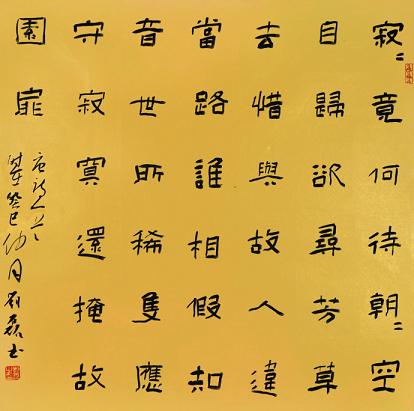 寂〻竟何待朝〻空
自歸欲尋芳草
去惜與故人違
當路誰相假知
音世所稀隻應
守寂寞還掩故
園扉
癸巳仲月劉磊书